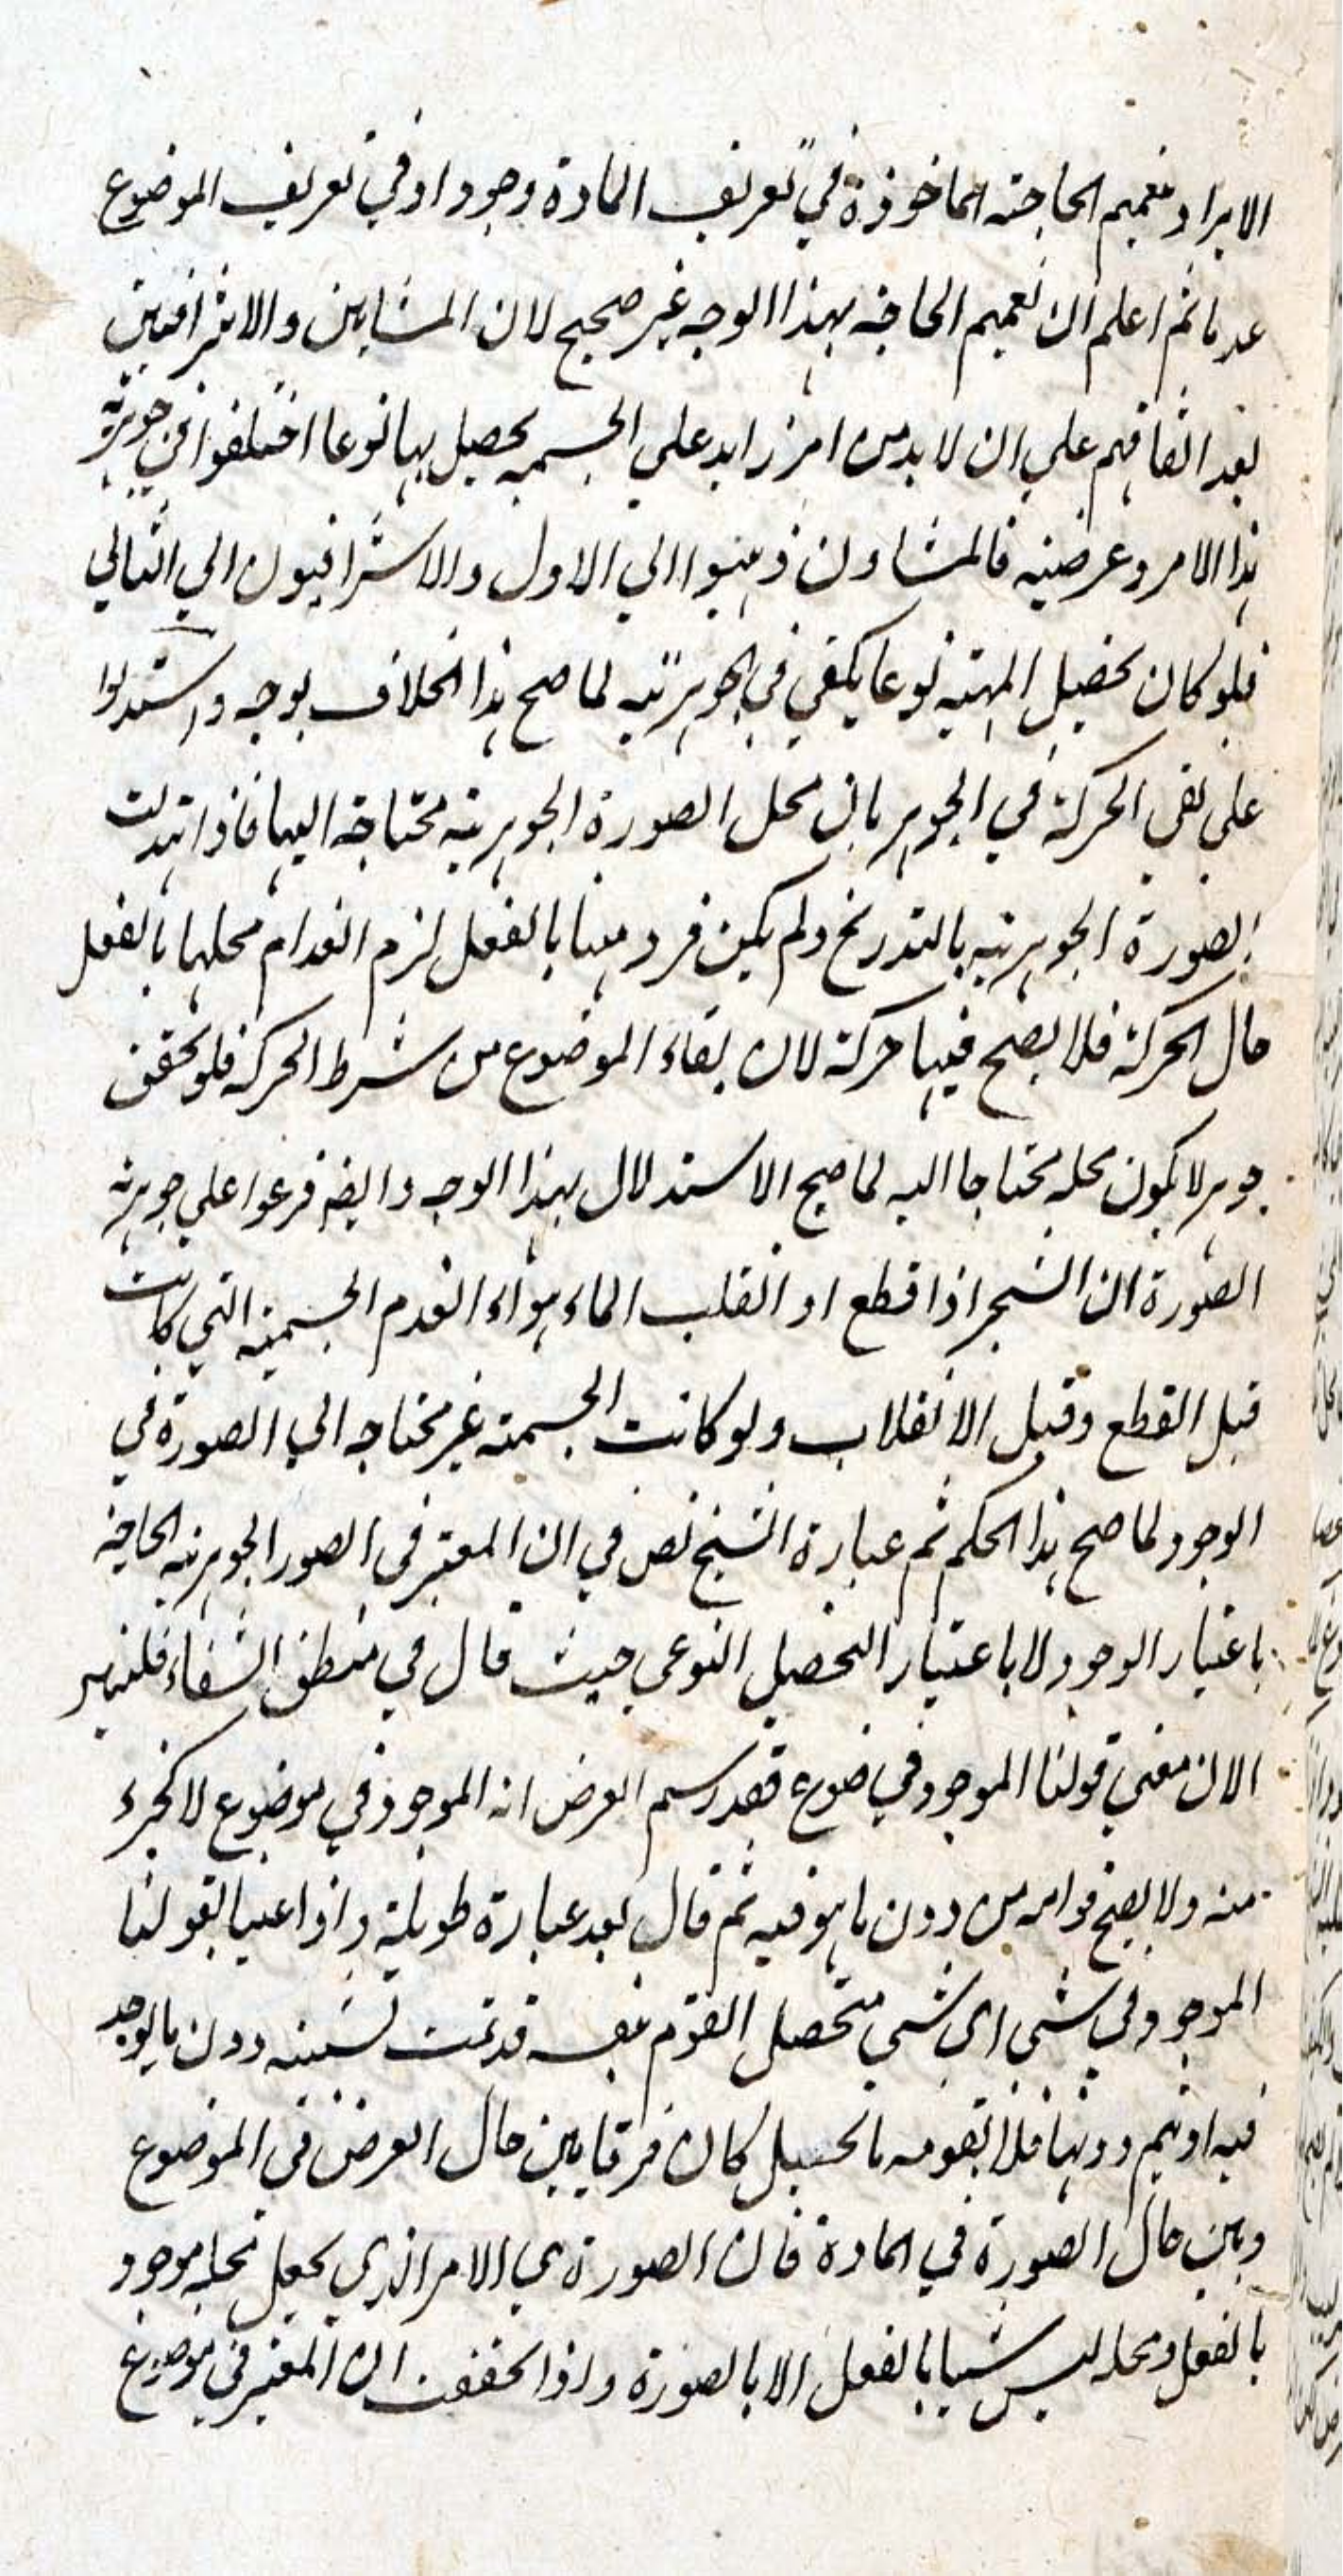 الايراد بتعميم الحاجة الماخوذة في تعريف المادة وجودا وفي تعريف الموضوع
عدما ثم اعلم ان تعميم الحاجة بهذا الوجه غير صحيح لان المشايين والاشراقيين
بعد اتفاقهم على ان لا بد من امر زايد على الجسمية يحصل بها نوعا اختلفوا في جوهرية
هذا الامر وعرضيته فالمشاوون ذهبوا الي الاول والاشراقيون الي الثاني
فلو كان تحصيل المهية نوعا يكفي في الجوهرية لما صح هذا الخلاف بوجه واستدلوا
على نفي الحركة في الجوهر بان محل الصورة الجوهرية محتاجة اليها فاذا تبدلت
الصورة الجوهرية بالتدريج ولم يكن فرد منها بالفعل لزم انعدام محلها بالفعل
حال الحركة فلا يصح فيها حركة لان بقاء الموضوع من شرط الحركة فلو تحقق
جوهر لا يكون محله محتاجا اليه لما صح الاستدلال بهذا الوجه وايضا فرعوا على جوهرية
الصورة ان الشجر اذا قطع او انقلب الماء هواء انعدم الجسمية التي كانت
قبل القطع وقبل الانقلاب ولو كانت الجسمية غير محتاجة الي الصورة في
الوجود لما صح هذا الحكم ثم عبارة الشيخ نص في ان المعتبر في الصور الجوهرية الحاجة
باعتبار الوجود لا باعتبار التحصيل النوعي حيث قال في منطق الشفاء فلنتدبر
الان معني قولنا الموجود في موضوع فقد رسم العرض انه الموجود في موضوع لا كجزء
منه ولا يصح قوامه من دون ما هو فيه ثم قال بعد عبارة طويلة واذا عنينا بقولنا
الموجود في شي اي شي متحصل القوام بنفسه قد تمت شيئيته دون ما يوجد
فيه او يتم دونها فلا يقومه ما تحصل كان فرقا بين حال العرض في الموضوع
وبين حال الصورة في المادة فان الصورة هي الامر الذي يجعل محله موجودا
بالفعل ومحله ليس شيا بالفعل الا بالصورة واذا تحققت ان المعتبر في موضوع